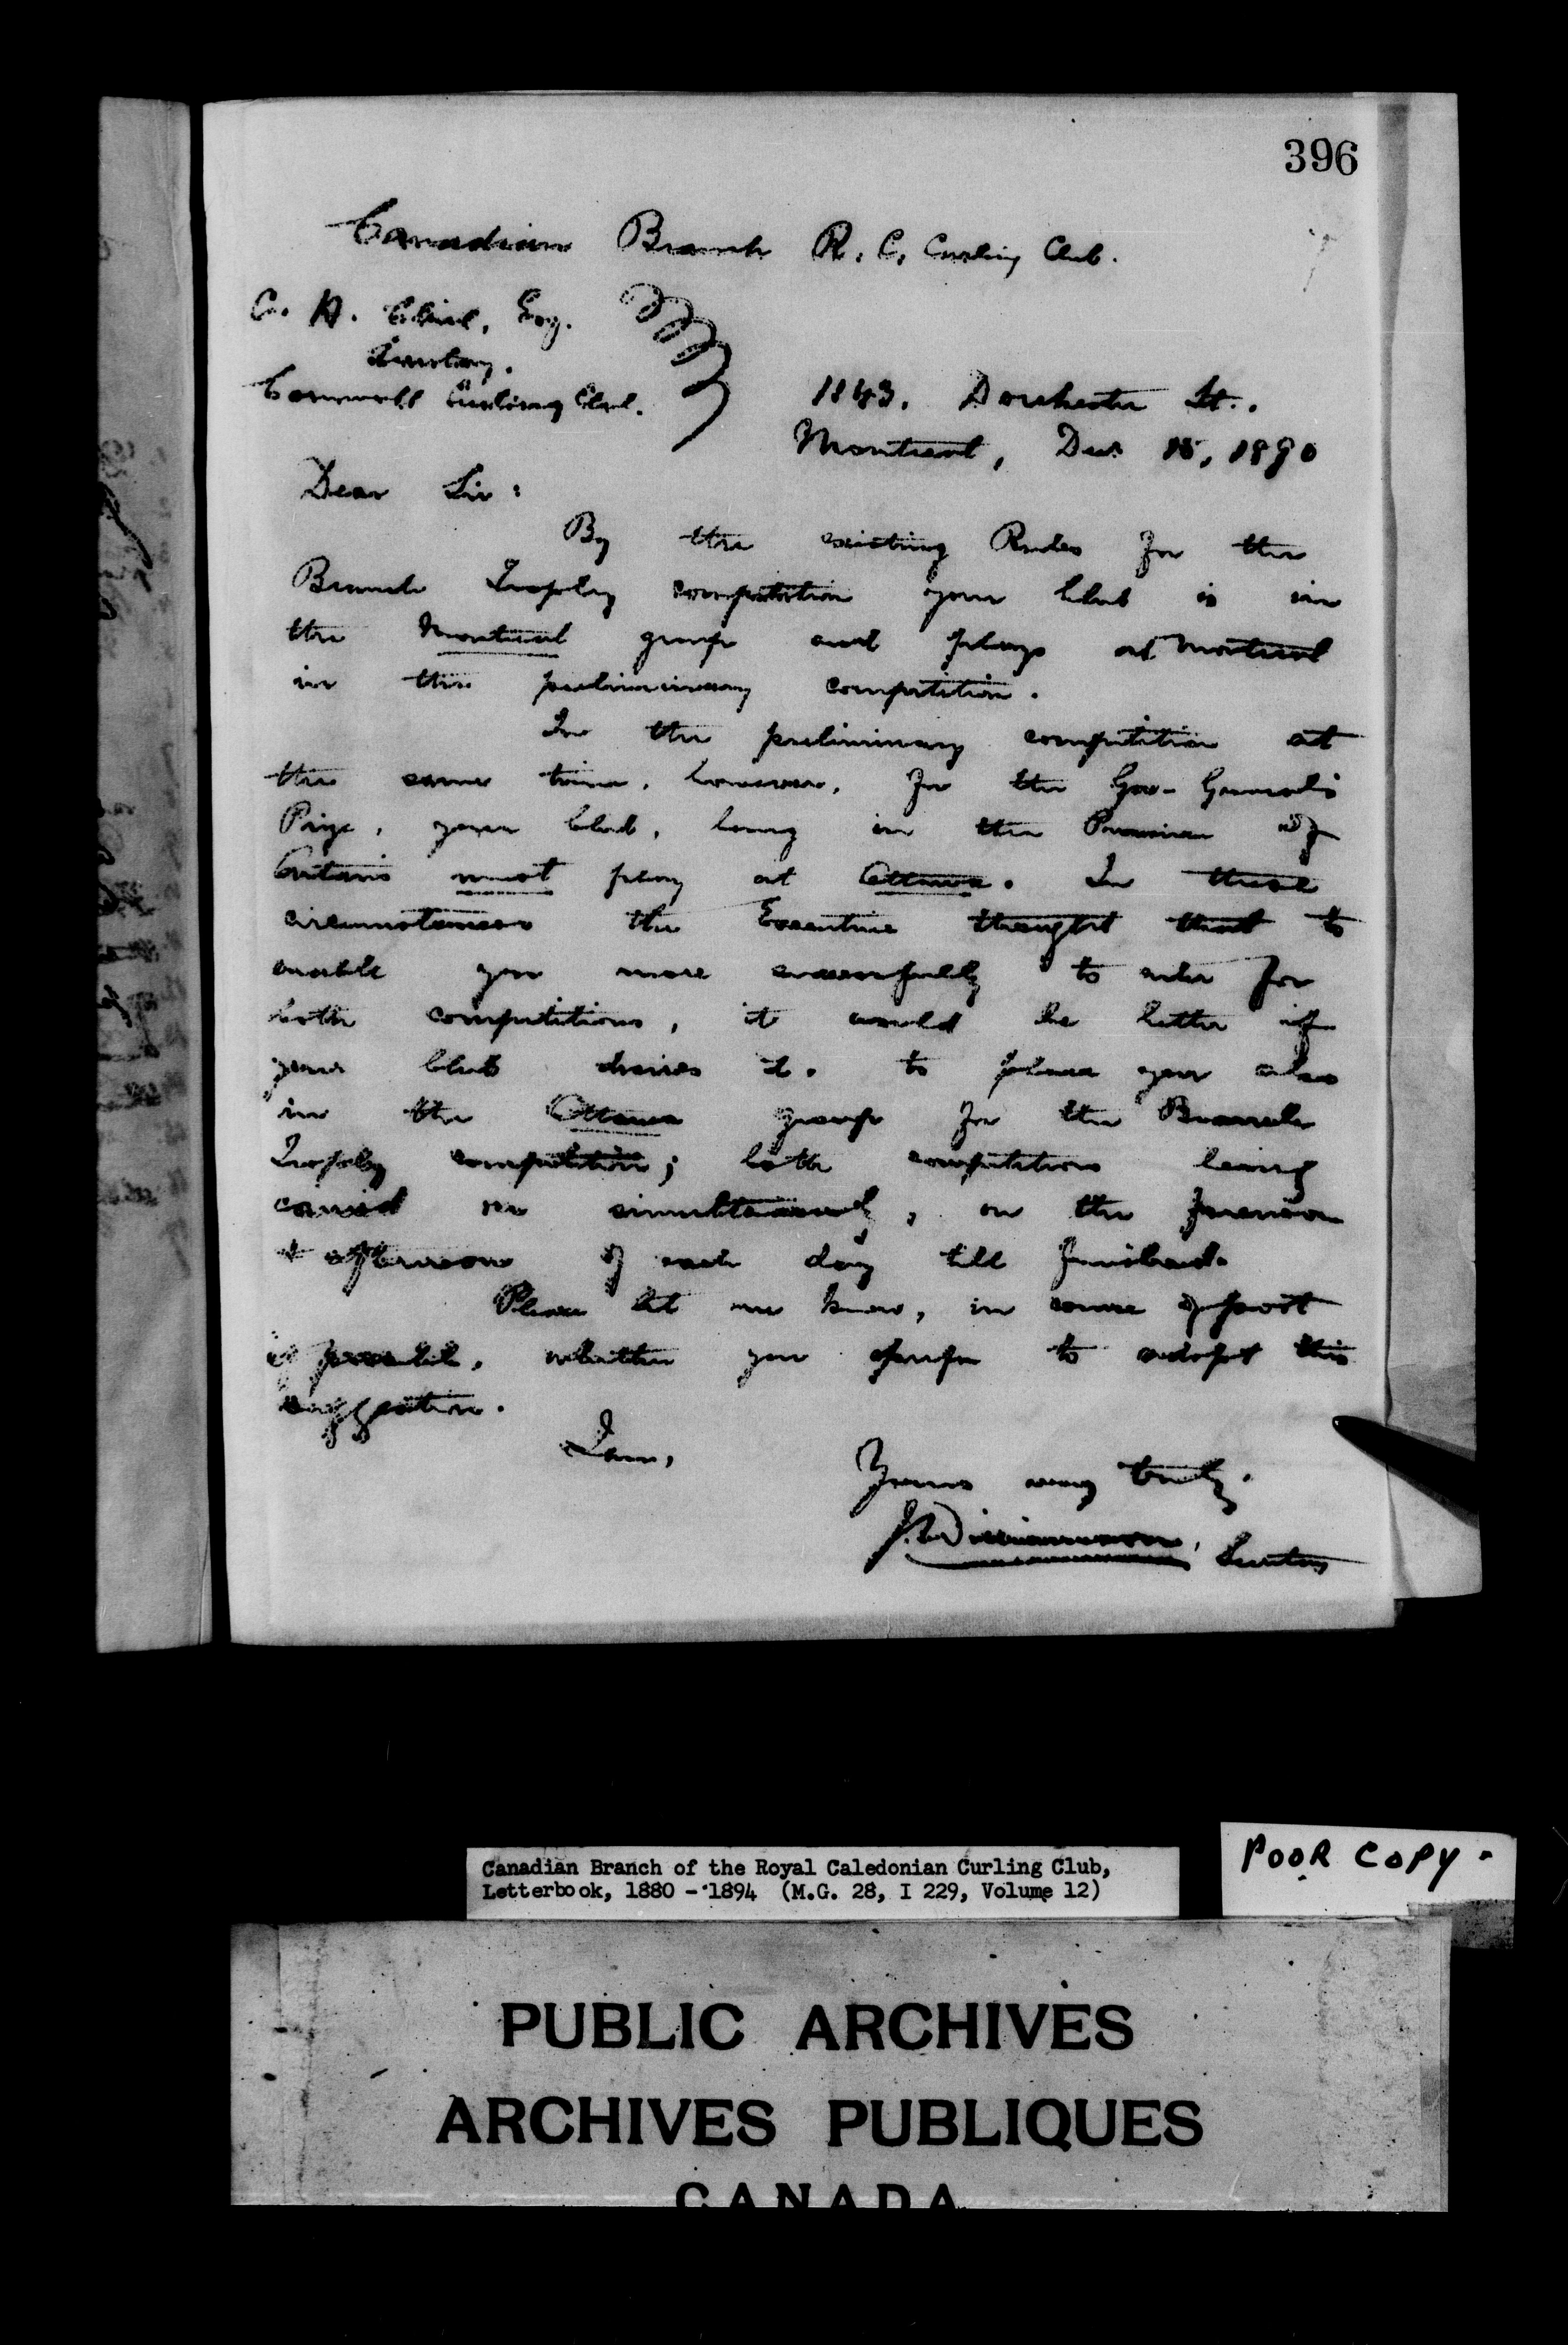 396
Canadian Branch R. C. Curling Club.
C. H. Cline, Esq.
Secretary.
Cornwall Curling Club.
1843, Dorchester St.,
Montreal, Dec 15, 1890
Dear Sir:
By the existing Rules for the
Branch Trophy competition your Club is in
the Montreal group and plays at Montreal
in the preliminary competition.
In the preliminary competition at
the same time, however, for the Gov-General's
Prize, your Club, being in the Province of
Ontario must play at Ottawa. In these
circumstances the Executive thought that to
enable you more successfully to enter for
both competitions, it would be better if
your Club desires it. to place you also
in the Ottawa group for the Branch
Trophy competition; both competitions being
carried on simultaneously, on the forenoon
& afternoon of each day till finished.
Please let me know, in course of post
if possible, whether you prefer to adopt this
suggestion.
I am,
Yours very truly.
J. Williamson, Secretary
Canadian Branch of the Royal Caledonian Curling Club,
Letterbook, 1880 - 1894 (M.G. 28, I 229, Volume 12)
POOR COPY -
PUBLIC ARCHIVES
ARCHIVES PUBLIQUES
CANADA